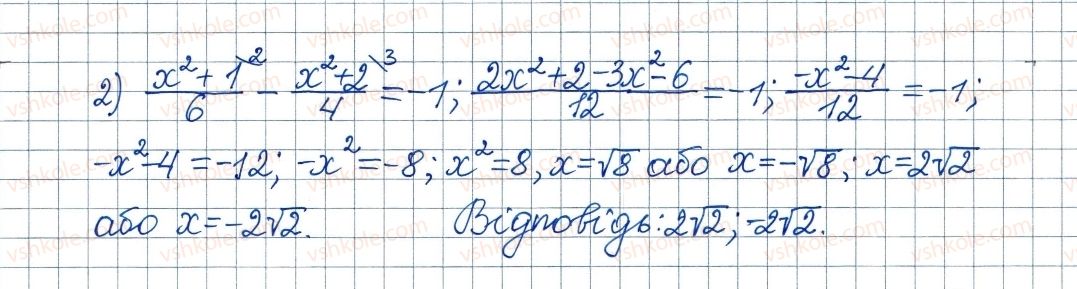 2) (x²+1)\² / 6 − (x²+2)\³ / 4 = −1; (2x²+2−3x²−6) / 12 = −1; (−x²−4) / 12 = −1;
−x²−4 = −12; −x² = −8; x² = 8, x = √8 або x = −√8; x = 2√2
або x = −2√2. Відповідь: 2√2; −2√2.